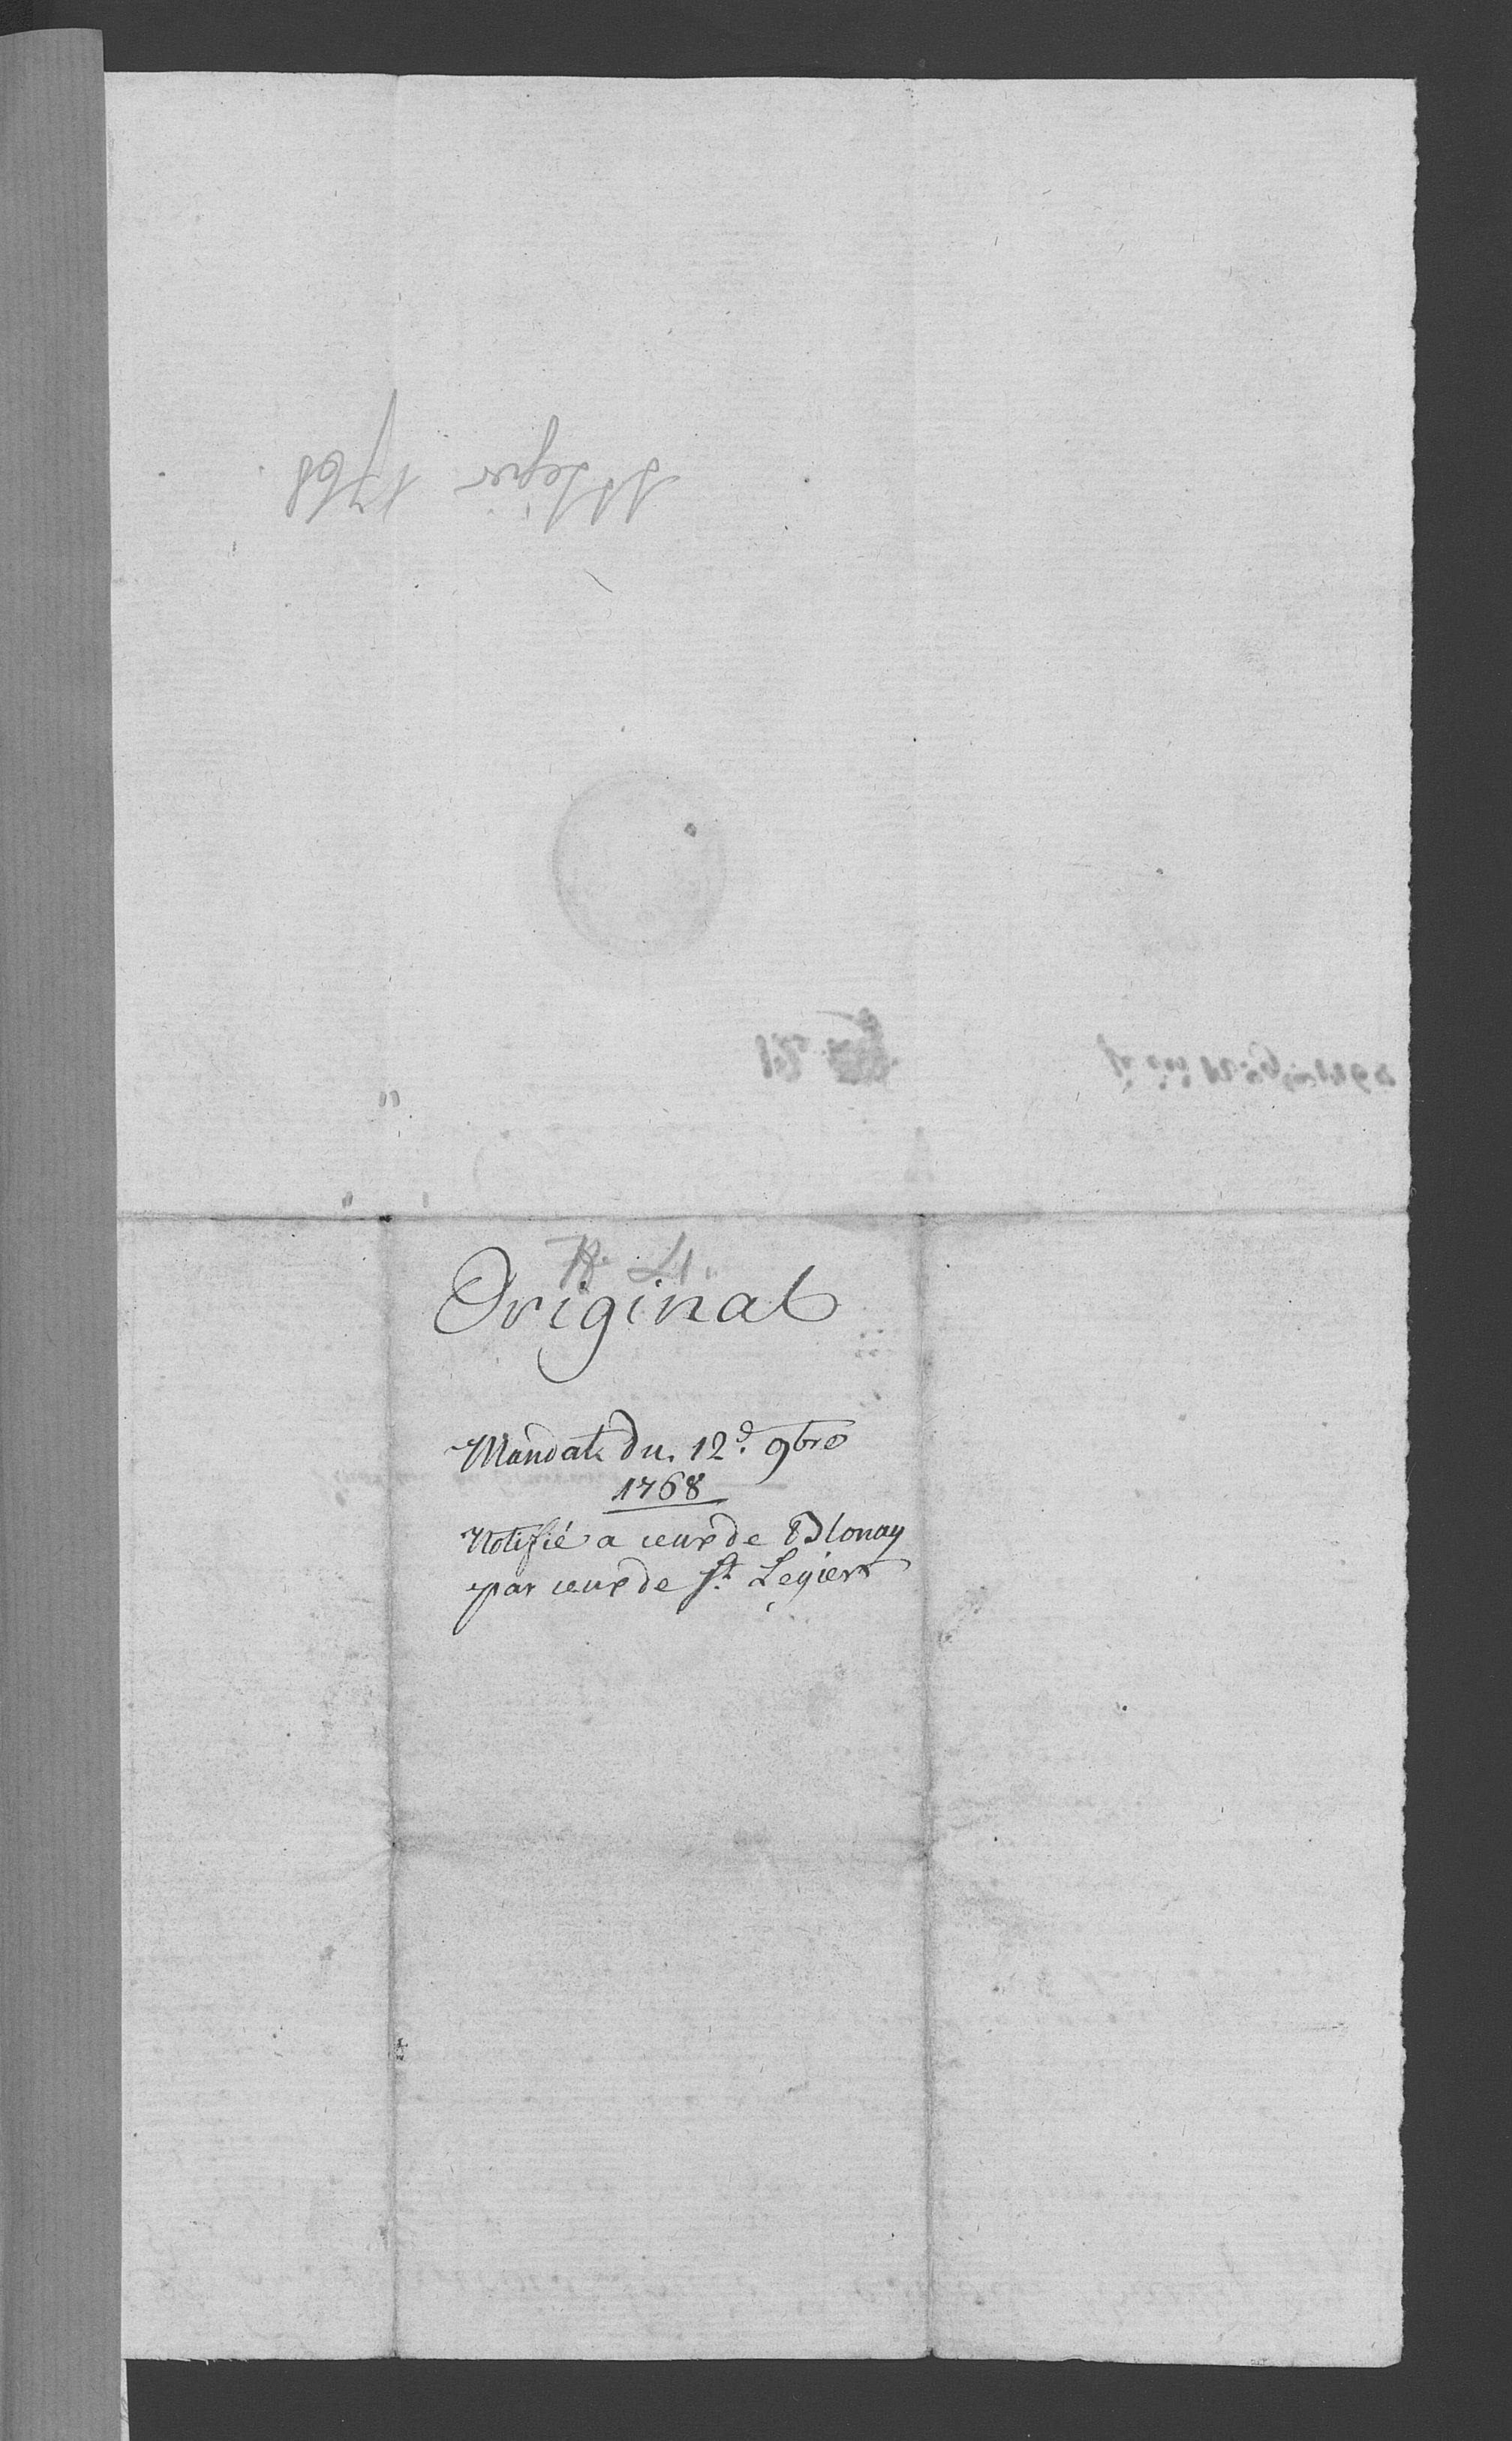 St Légier 1768
Original
Mandat du 12e. 9bre
1768
Notifié a ceux de Blonay
par ceux de St. Legier